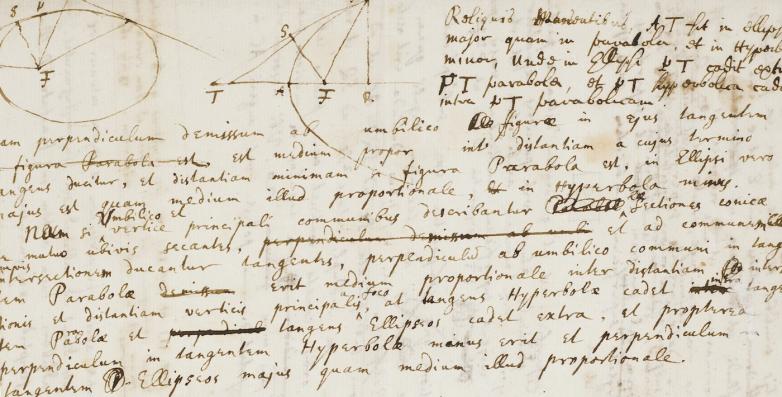 S P
F
S
T A F R
Reliquis manentibus, AT fit in ellipsi
major quam in parabola, et in Hyperb
minor, Unde in Ellipsi PT cadit extra
PT parabolæ, et PT hyperbolica cad
intra PT parabolicam.
am perpendiculum demissum ab umbilico figuræ in ejus tangentem
figura Parabola est, est medium propor int distantiam a cujus termino
angens ducitur, et distantiam minimam si figura Parabola est, in Ellipsi vero
majus est quam medium illud proportionale, et in Hyperbola minus.
Nam si umbilico et vertice principali communibus describantur Sectiones conicæ
mutuo ubivis secantes, perpendiculum demissum ab umbi et ad communem
intersectionem ducantur tangentes, perpendiculum ab umbilico communi in tang
tem Parabolæ demissum erit medium proportionale inter distantiam inter
tionis et distantiam verticis principalis a foco at tangens Hyperbolæ cadet intra tange
tem Parabolæ et tangens Ellipseos cadet extra, et propterea
perpendiculum in tangentem Hyperbolæ minus erit et perpendiculum in
tangentem Ellipseos majus quam medium illud proportionale.